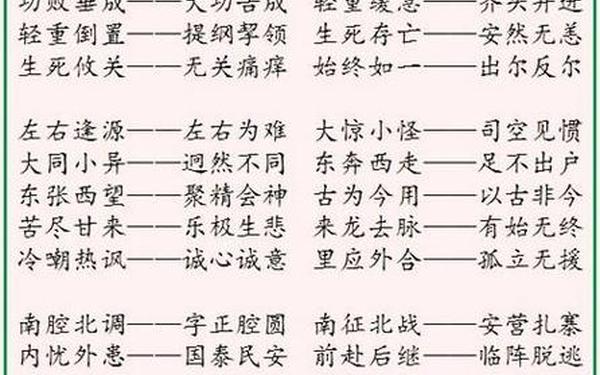 功败垂成——大功告成 轻重缓急——齐头并进
轻重倒置——提纲挈领 生死存亡——安然无恙
生死攸关——无关痛痒 始终如一——出尔反尔
左右逢源——左右为难 大惊小怪——司空见惯
大同小异——迥然不同 东奔西走——足不出户
东张西望——聚精会神 古为今用——以古非今
苦尽甘来——乐极生悲 来龙去脉——有始无终
冷嘲热讽——诚心诚意 里应外合——孤立无援
南腔北调——字正腔圆 南征北战——安营扎寨
内忧外患——国泰民安 前赴后继——临阵脱逃